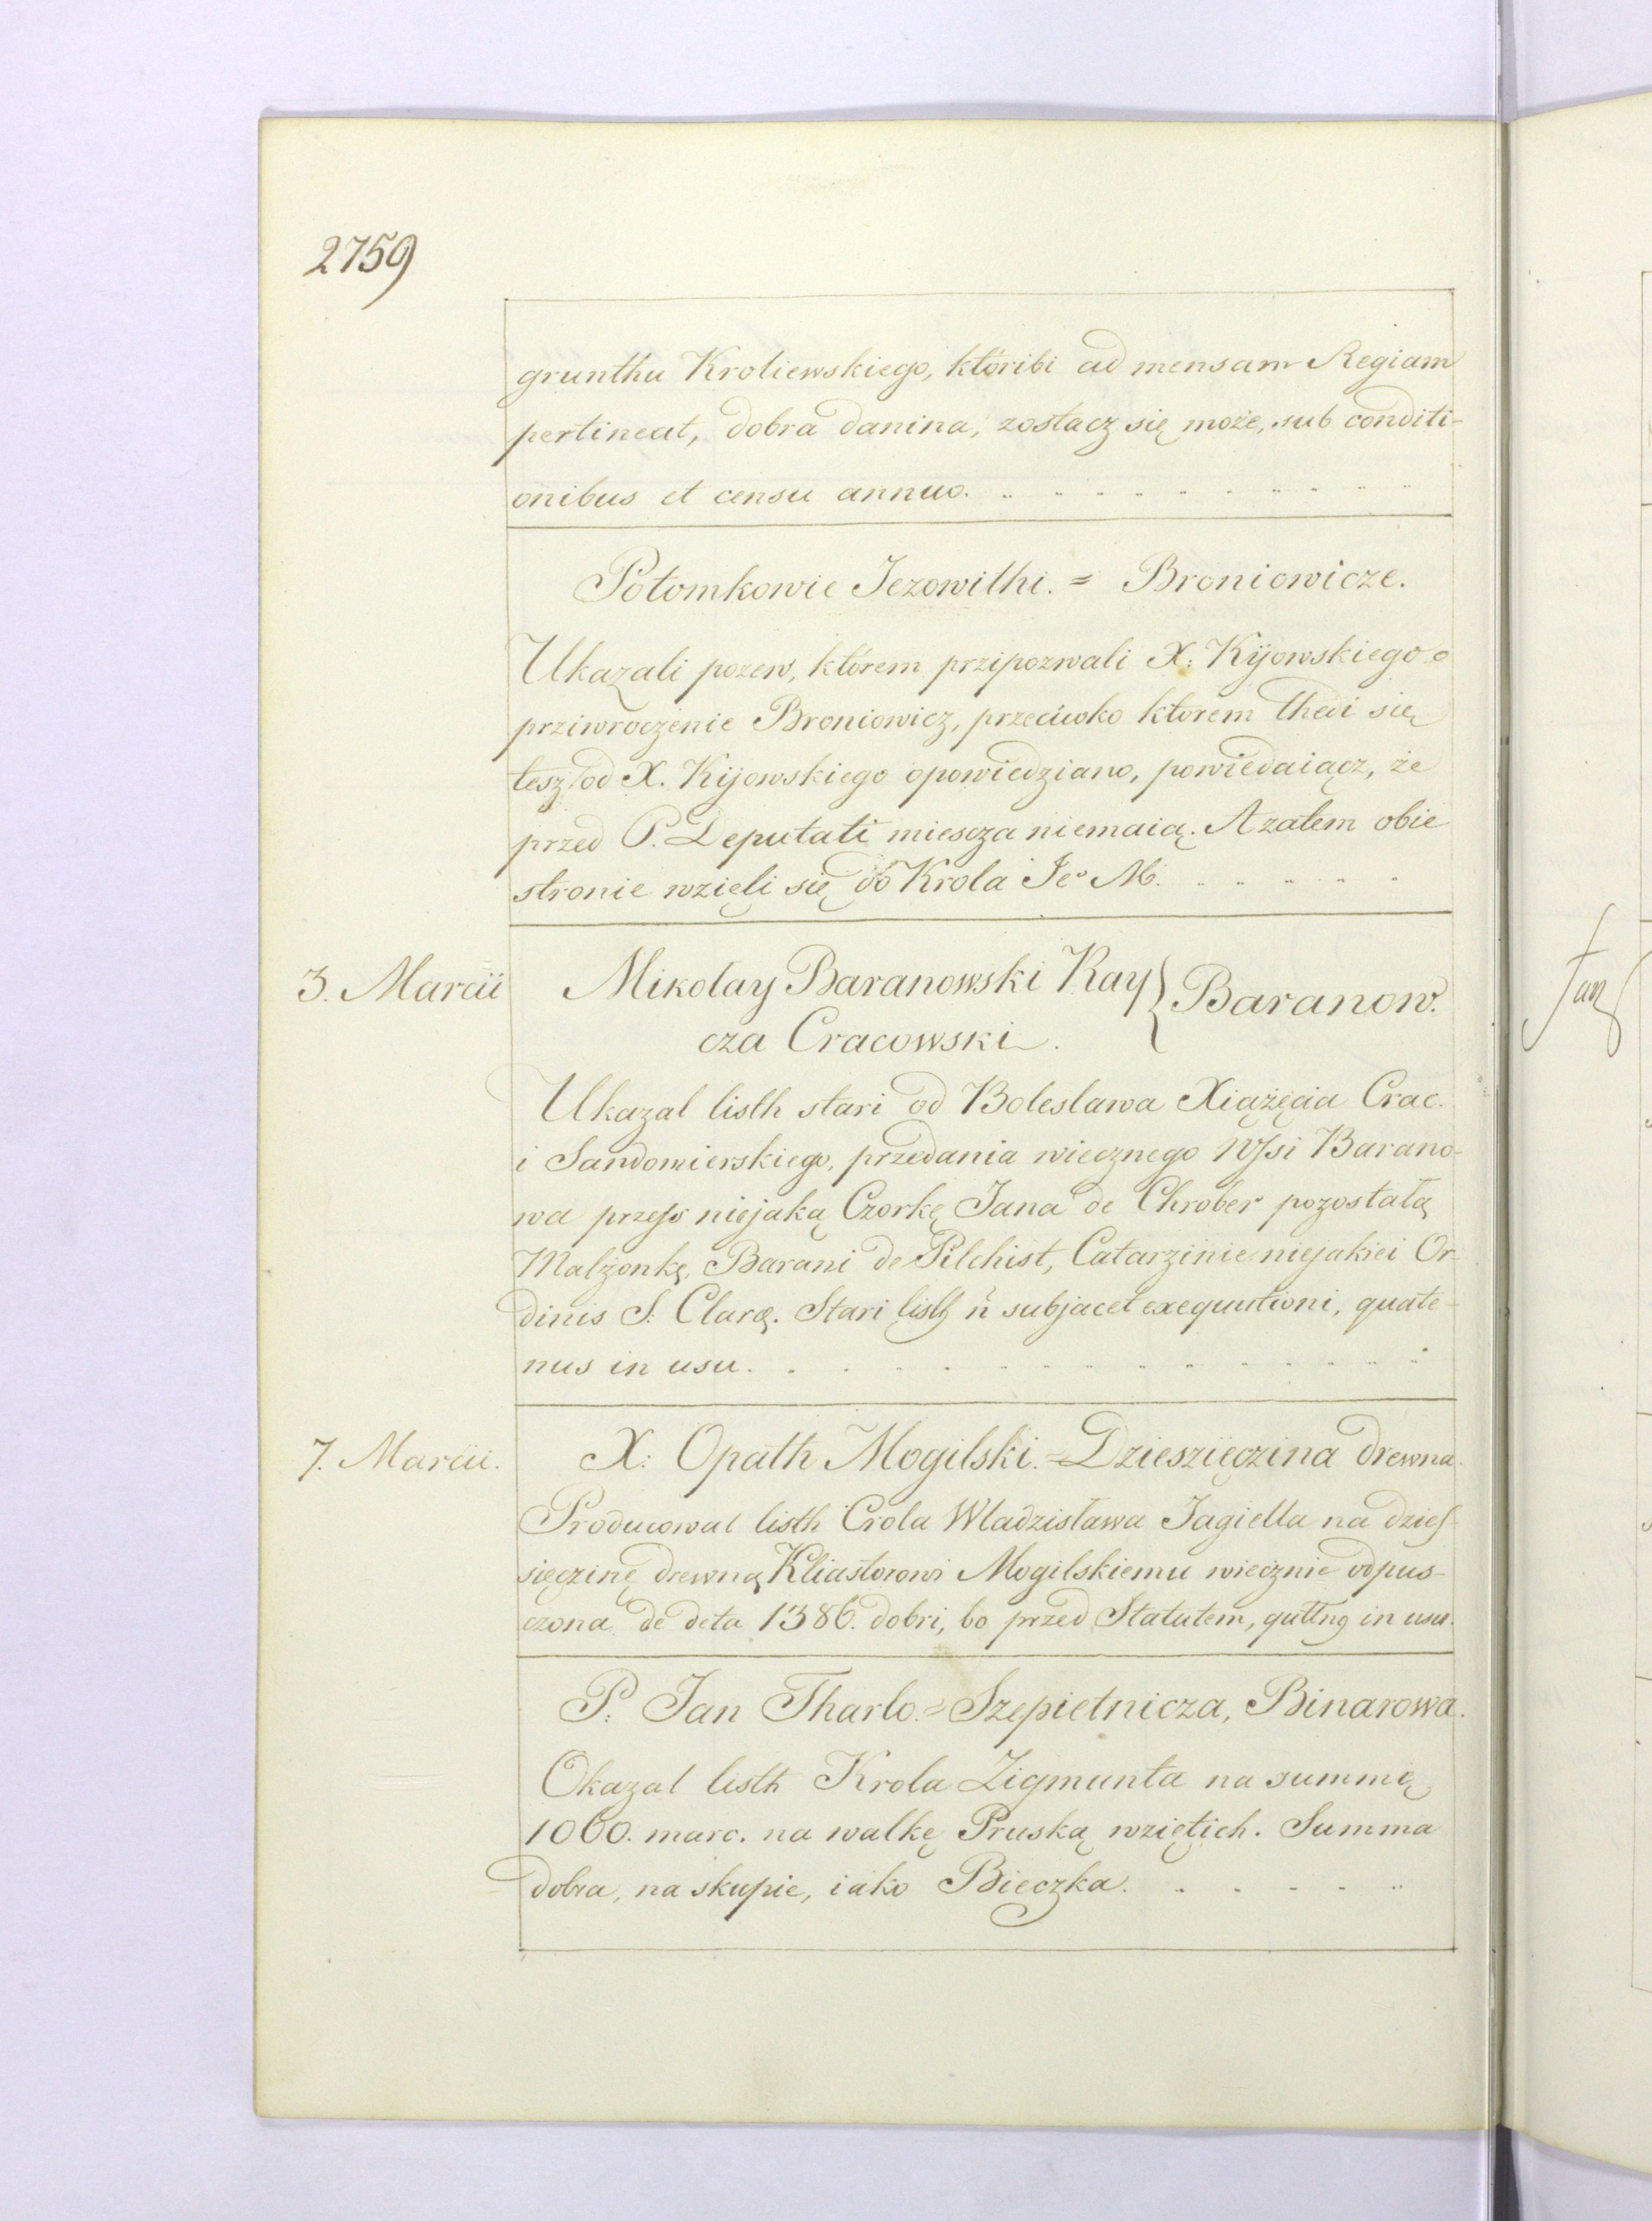 2759
grunthu Kroliewskiego, któribi ad mensam Regiam
pertineat, dobra danina, zostacz się może, sub conditi-
onibus et censu annuo.
Potomkowie Jezowithi. = Broniowicze.
Ukazali pozew, którem przipozwali X: Kijowskiego o
prziwroczenie Broniowicz, przeciwko ktorem thedi się
tesz od X. Kijowskiego opowiedziano, powiedaiącz, że
przed P. Deputati miescza niemaią. A zatem obie
stronie wzięli się do Krola Jeº M.
3. Marcii
Mikolay Baranowski Ray
cza Cracowski.
} Baranow.
Ukazal listh stari od Boleslawa Xiążęcia Crac.
i Sandomierskiego, przedania wiecznego Wsi Barano-
wa przess niejaką Czorkę Jana de Chrober pozostałą
Malżonkę Barani de Pilchist, Catarzinie niejakiei Or-
dinis S: Clarę. Stari listh ń subjacet exequutioni, quate-
nus in usu.
7. Marcii.
X: Opath Mogilski. = Dzieszięczina drewna.
Producowal listh Crola Wladzisława Jagiella na dzies-
sięczinę drewną Kliastorowi Mogilskiemu wiecznie odpus-
czona de deta 1386. dobri, bo przed Statutem, quttng in usu.
P: Jan Tharlo. = Szepietnicza, Binarowa.
Okazal listh Krola Zigmunta na summę
1000. marc. na walkę Pruską wziętich. Summa
dobra, na skupie, iako Bieczka.
Jan